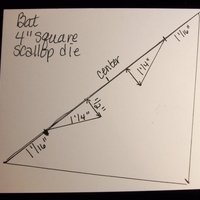 Bat
4" square
scallop die
center
1 1/16"
1 1/4"
1 1/4"
1 1/16"